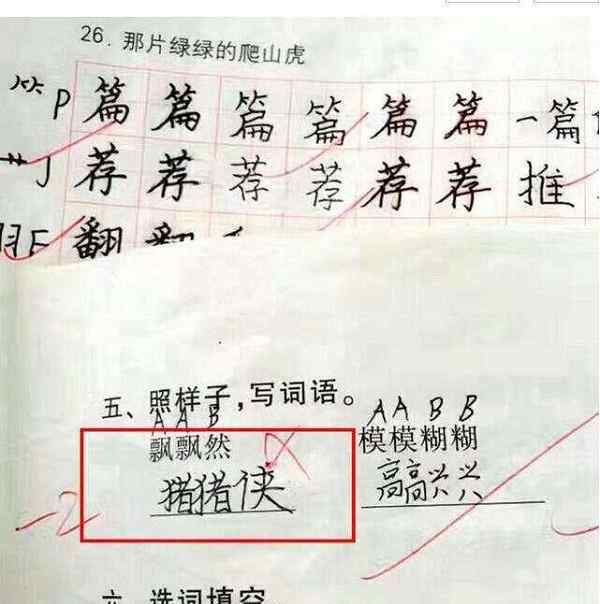 26. 那片绿绿的爬山虎
⺮ P 篇 篇 篇 篇 篇 篇 一篇
艹 J 荐 荐 荐 荐 荐 荐 推
羽 E 翻 翻
五、照样子,写词语。
A A B A A B B
飘飘然 模模糊糊
猪猪侠 高高兴兴
-2
六、选词填空